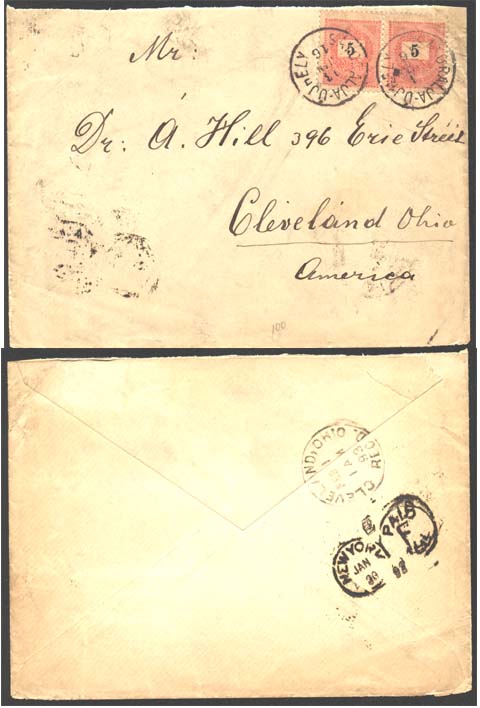 5 5
ALJA-UJHELY
ORALJA-UJHELY
Mr:
Dr: A. Hill 396 Erie Street
Cleveland Ohio
America
100
CLEVELAND, OHIO.
REC'D.
NEW YORK
JAN
30
PAID
F
ALL